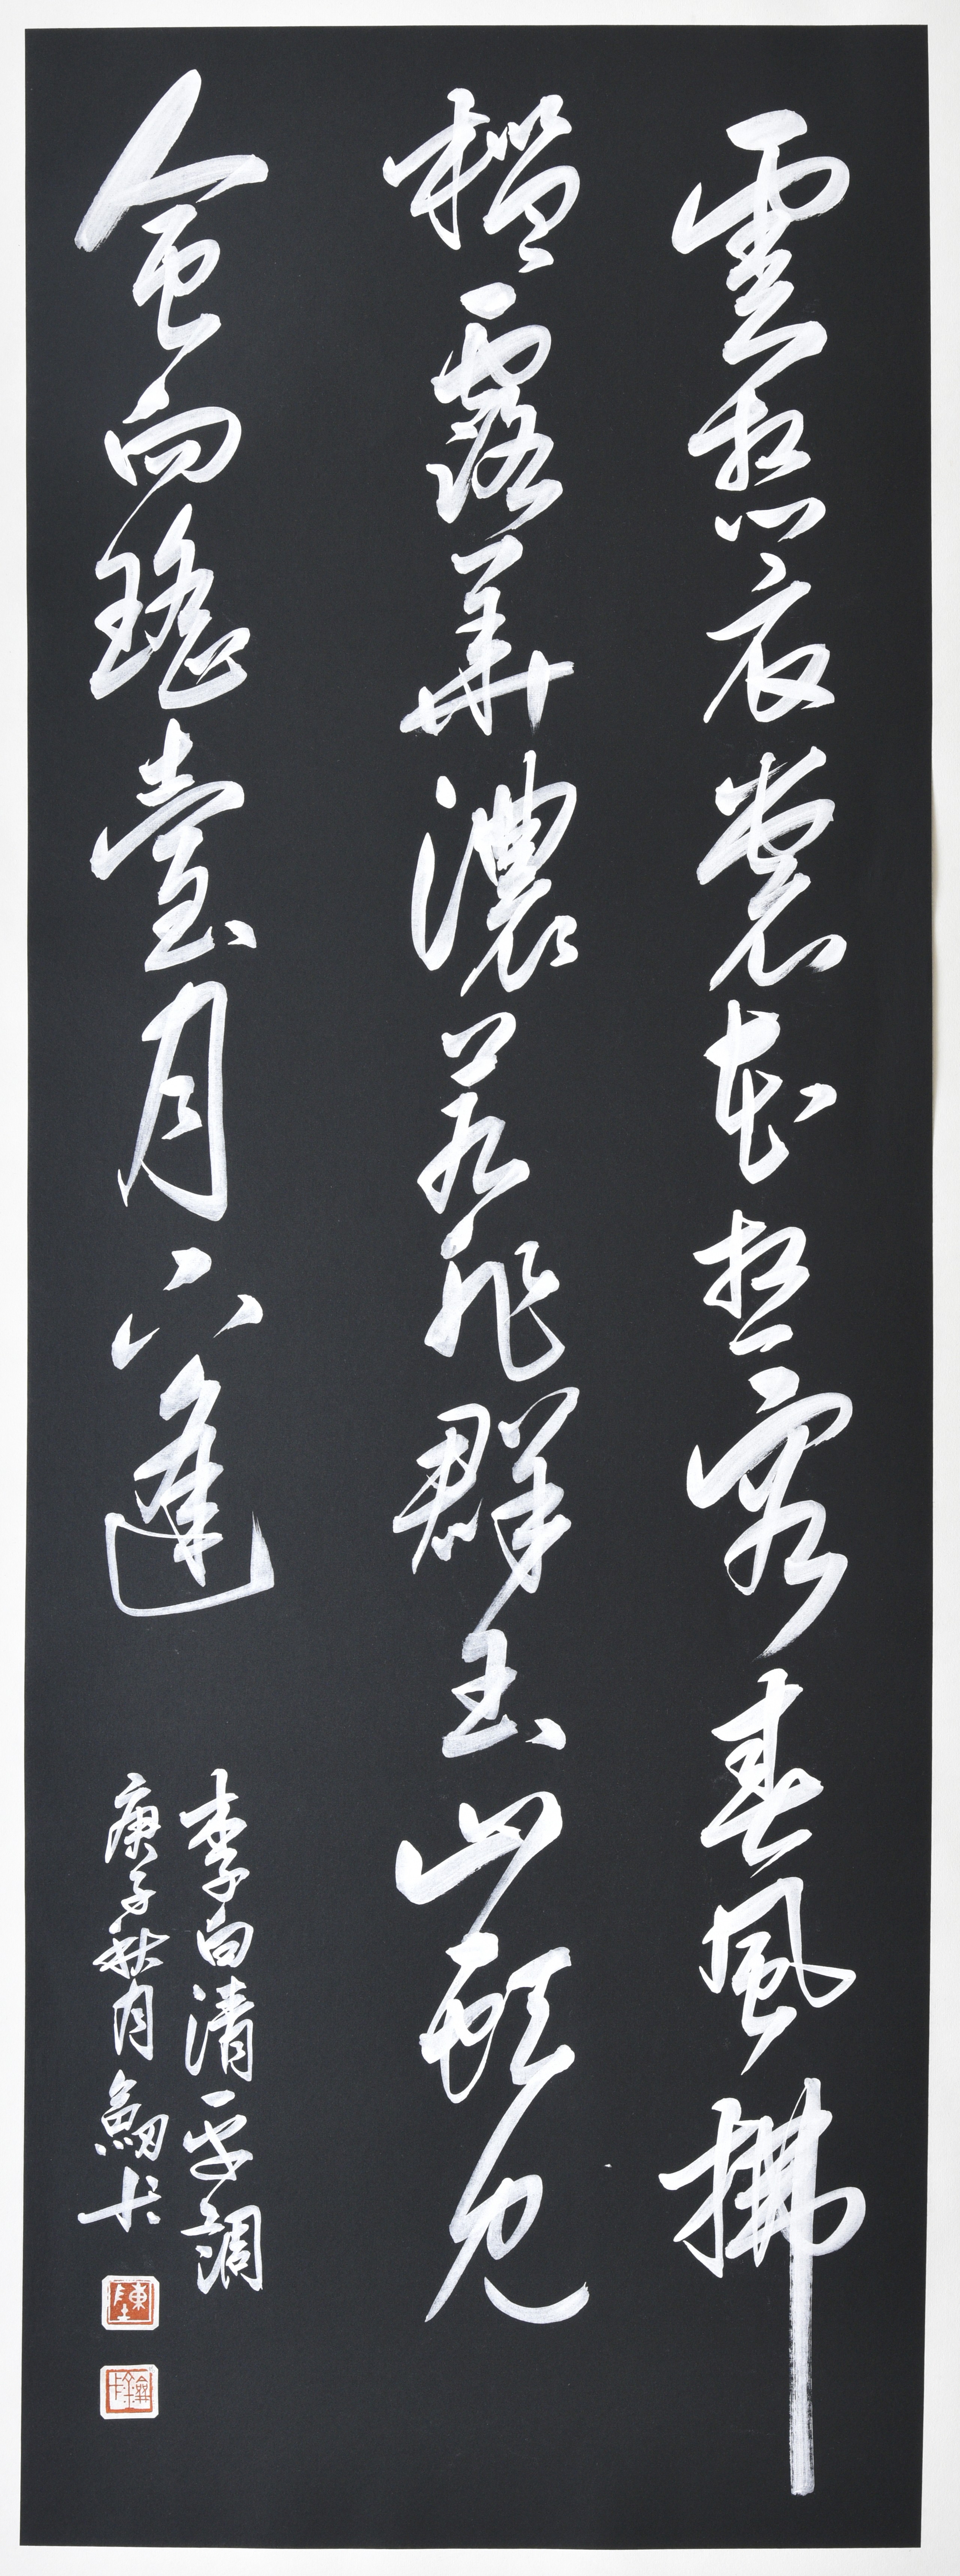 雲想衣裳花想容春風拂
檻露華濃若非群玉山頭見
會向瑤臺月下逢
李白清平調
庚子秋月